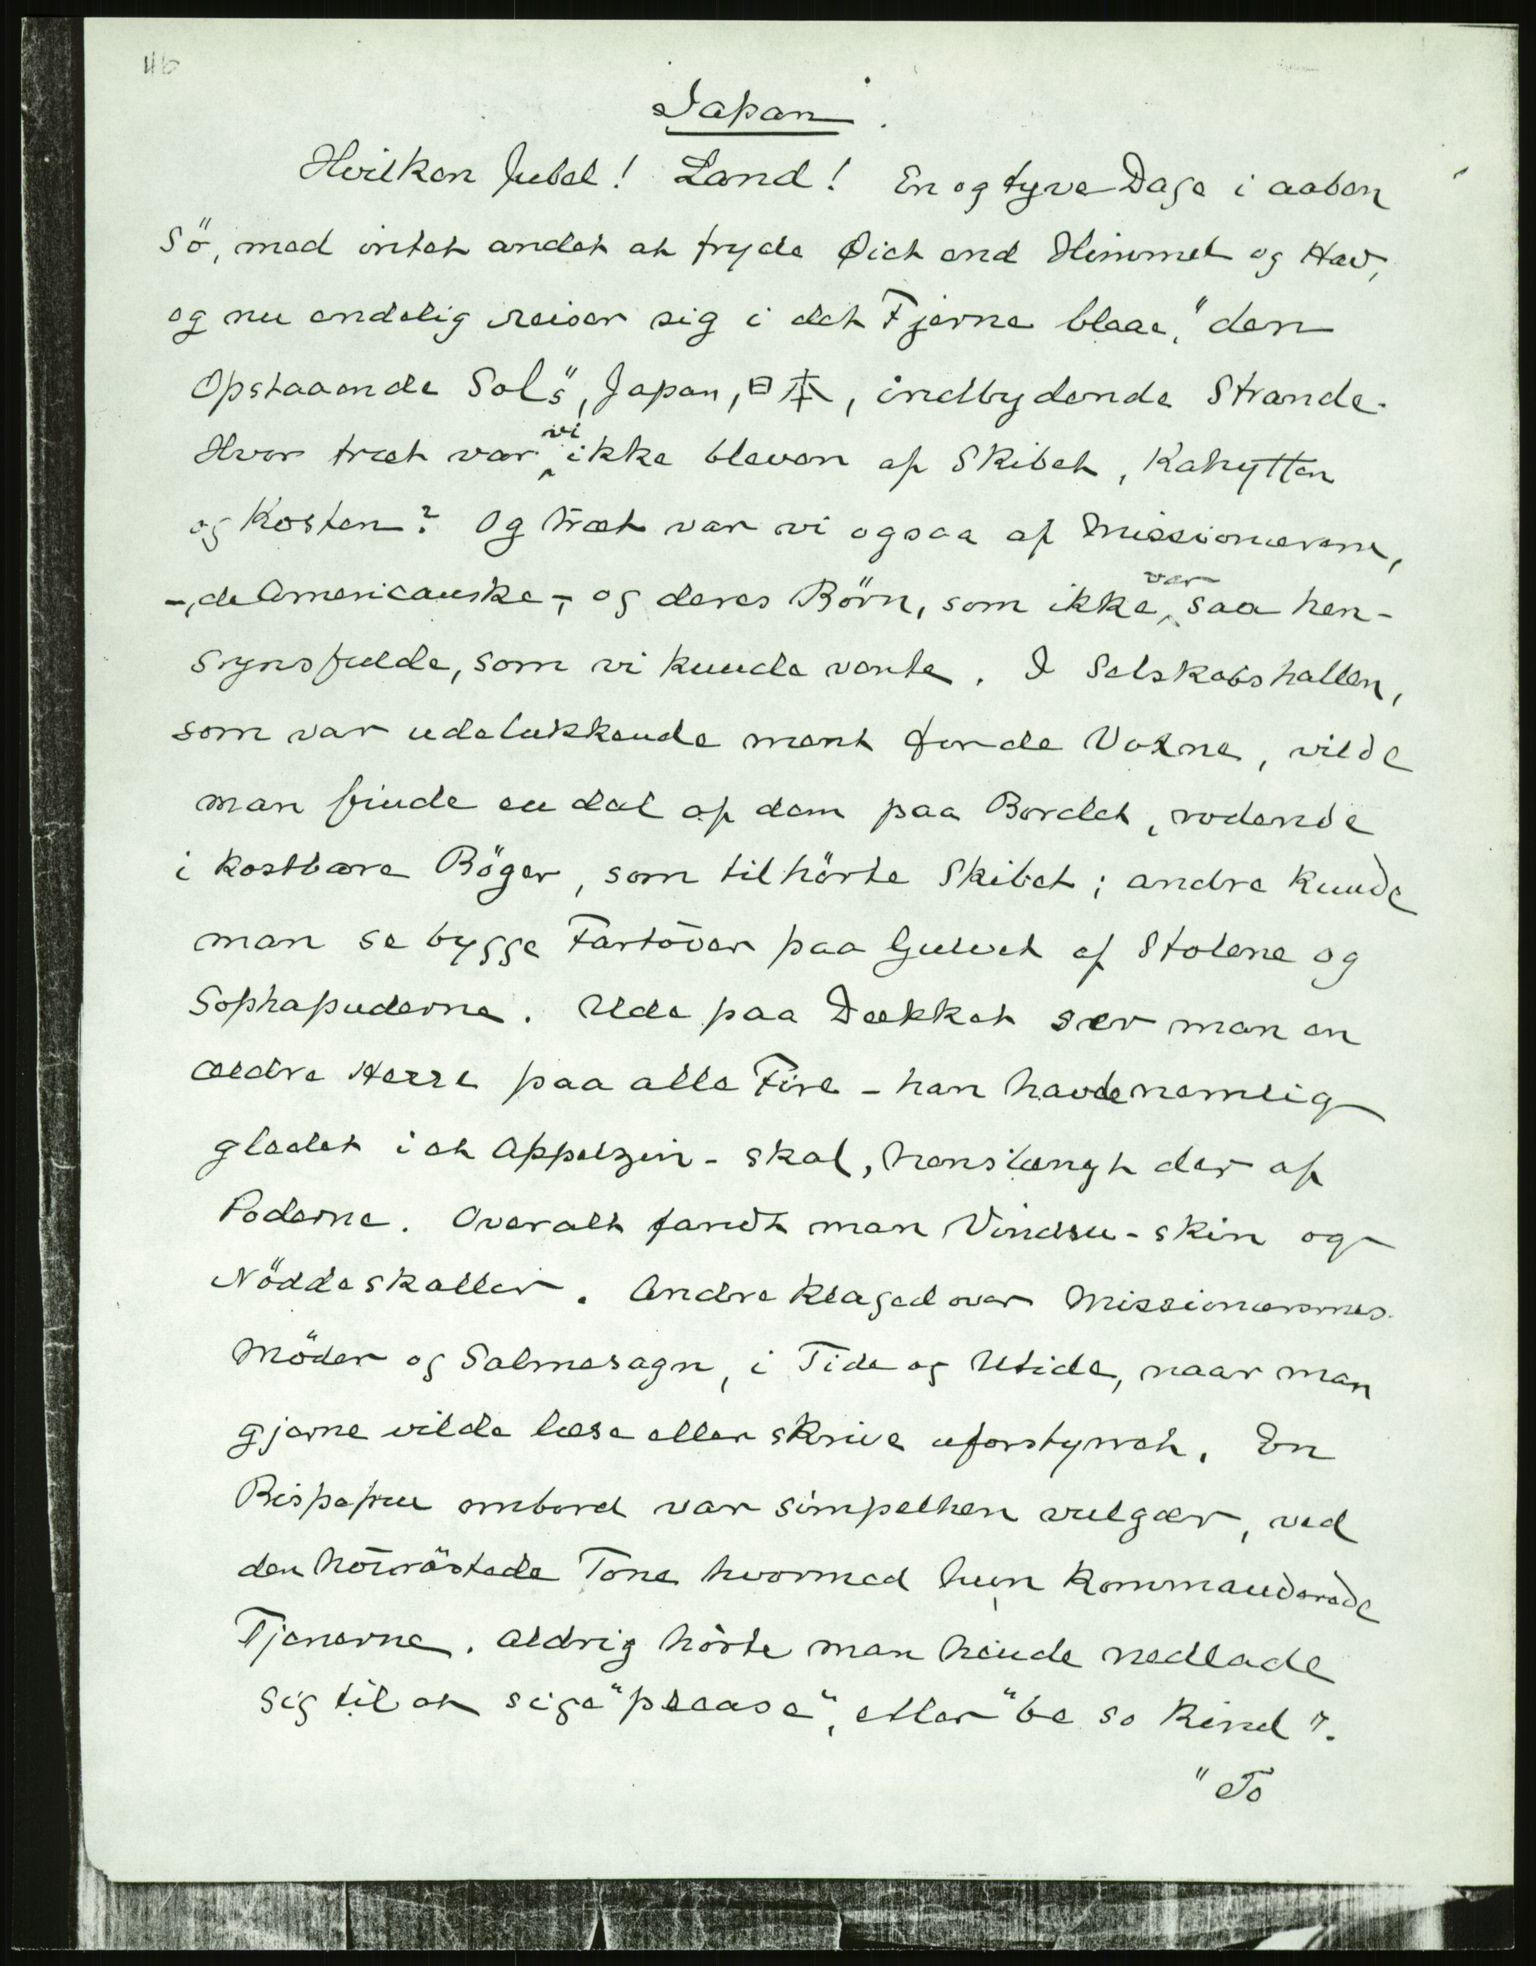 46
Japan.
Hvilken Jubel! Land! En og tyve Dage i aaben
Sö, med intet andet at fryde Øiet end Himmel og Hav,
og nu endelig reiser sig i det Fjerne blaae, "den
Opstaaende Sol's", Japan, 日本, indbydende Strande.
Hvor træt var vi ikke bleven af Skibet, Kahytten
og Kosten? Og træt var vi ogsaa af Missionærerne,
-, de Americanske -, og deres Börn, som ikke var saa hen-
synsfulde, som vi kunde vente. I Selskabshallen,
som var udelukkende ment for de Voksne, vilde
man finde en del af dem paa Bordet, rodende
i kostbare Böger, som tilhörte Skibet; andre kunde
man se bygge Fartöier paa Gulvet af Stolene og
Sophapuderne. Ude paa Dækket ser man en
ældre Herre paa alle Fire - han havde nemlig
gledet i et Appelzin-skal, henslængt der af
Poderne. Overalt fandt man Vindru-skin og
Nöddeskaller. Andre klaged over Missionærernes
Möder og Salmesagn, i Tide og Utide, naar man
gjerne vilde læse eller skrive uforstyrret. En
Bispefrue ombord var simpelhen vulgær, ved
den höiröstede Tone hvormed hun kommanderede
Tjenerne. Aldrig hörte man hende nedlade
sig til at sige "please", eller "be so kind".
"To